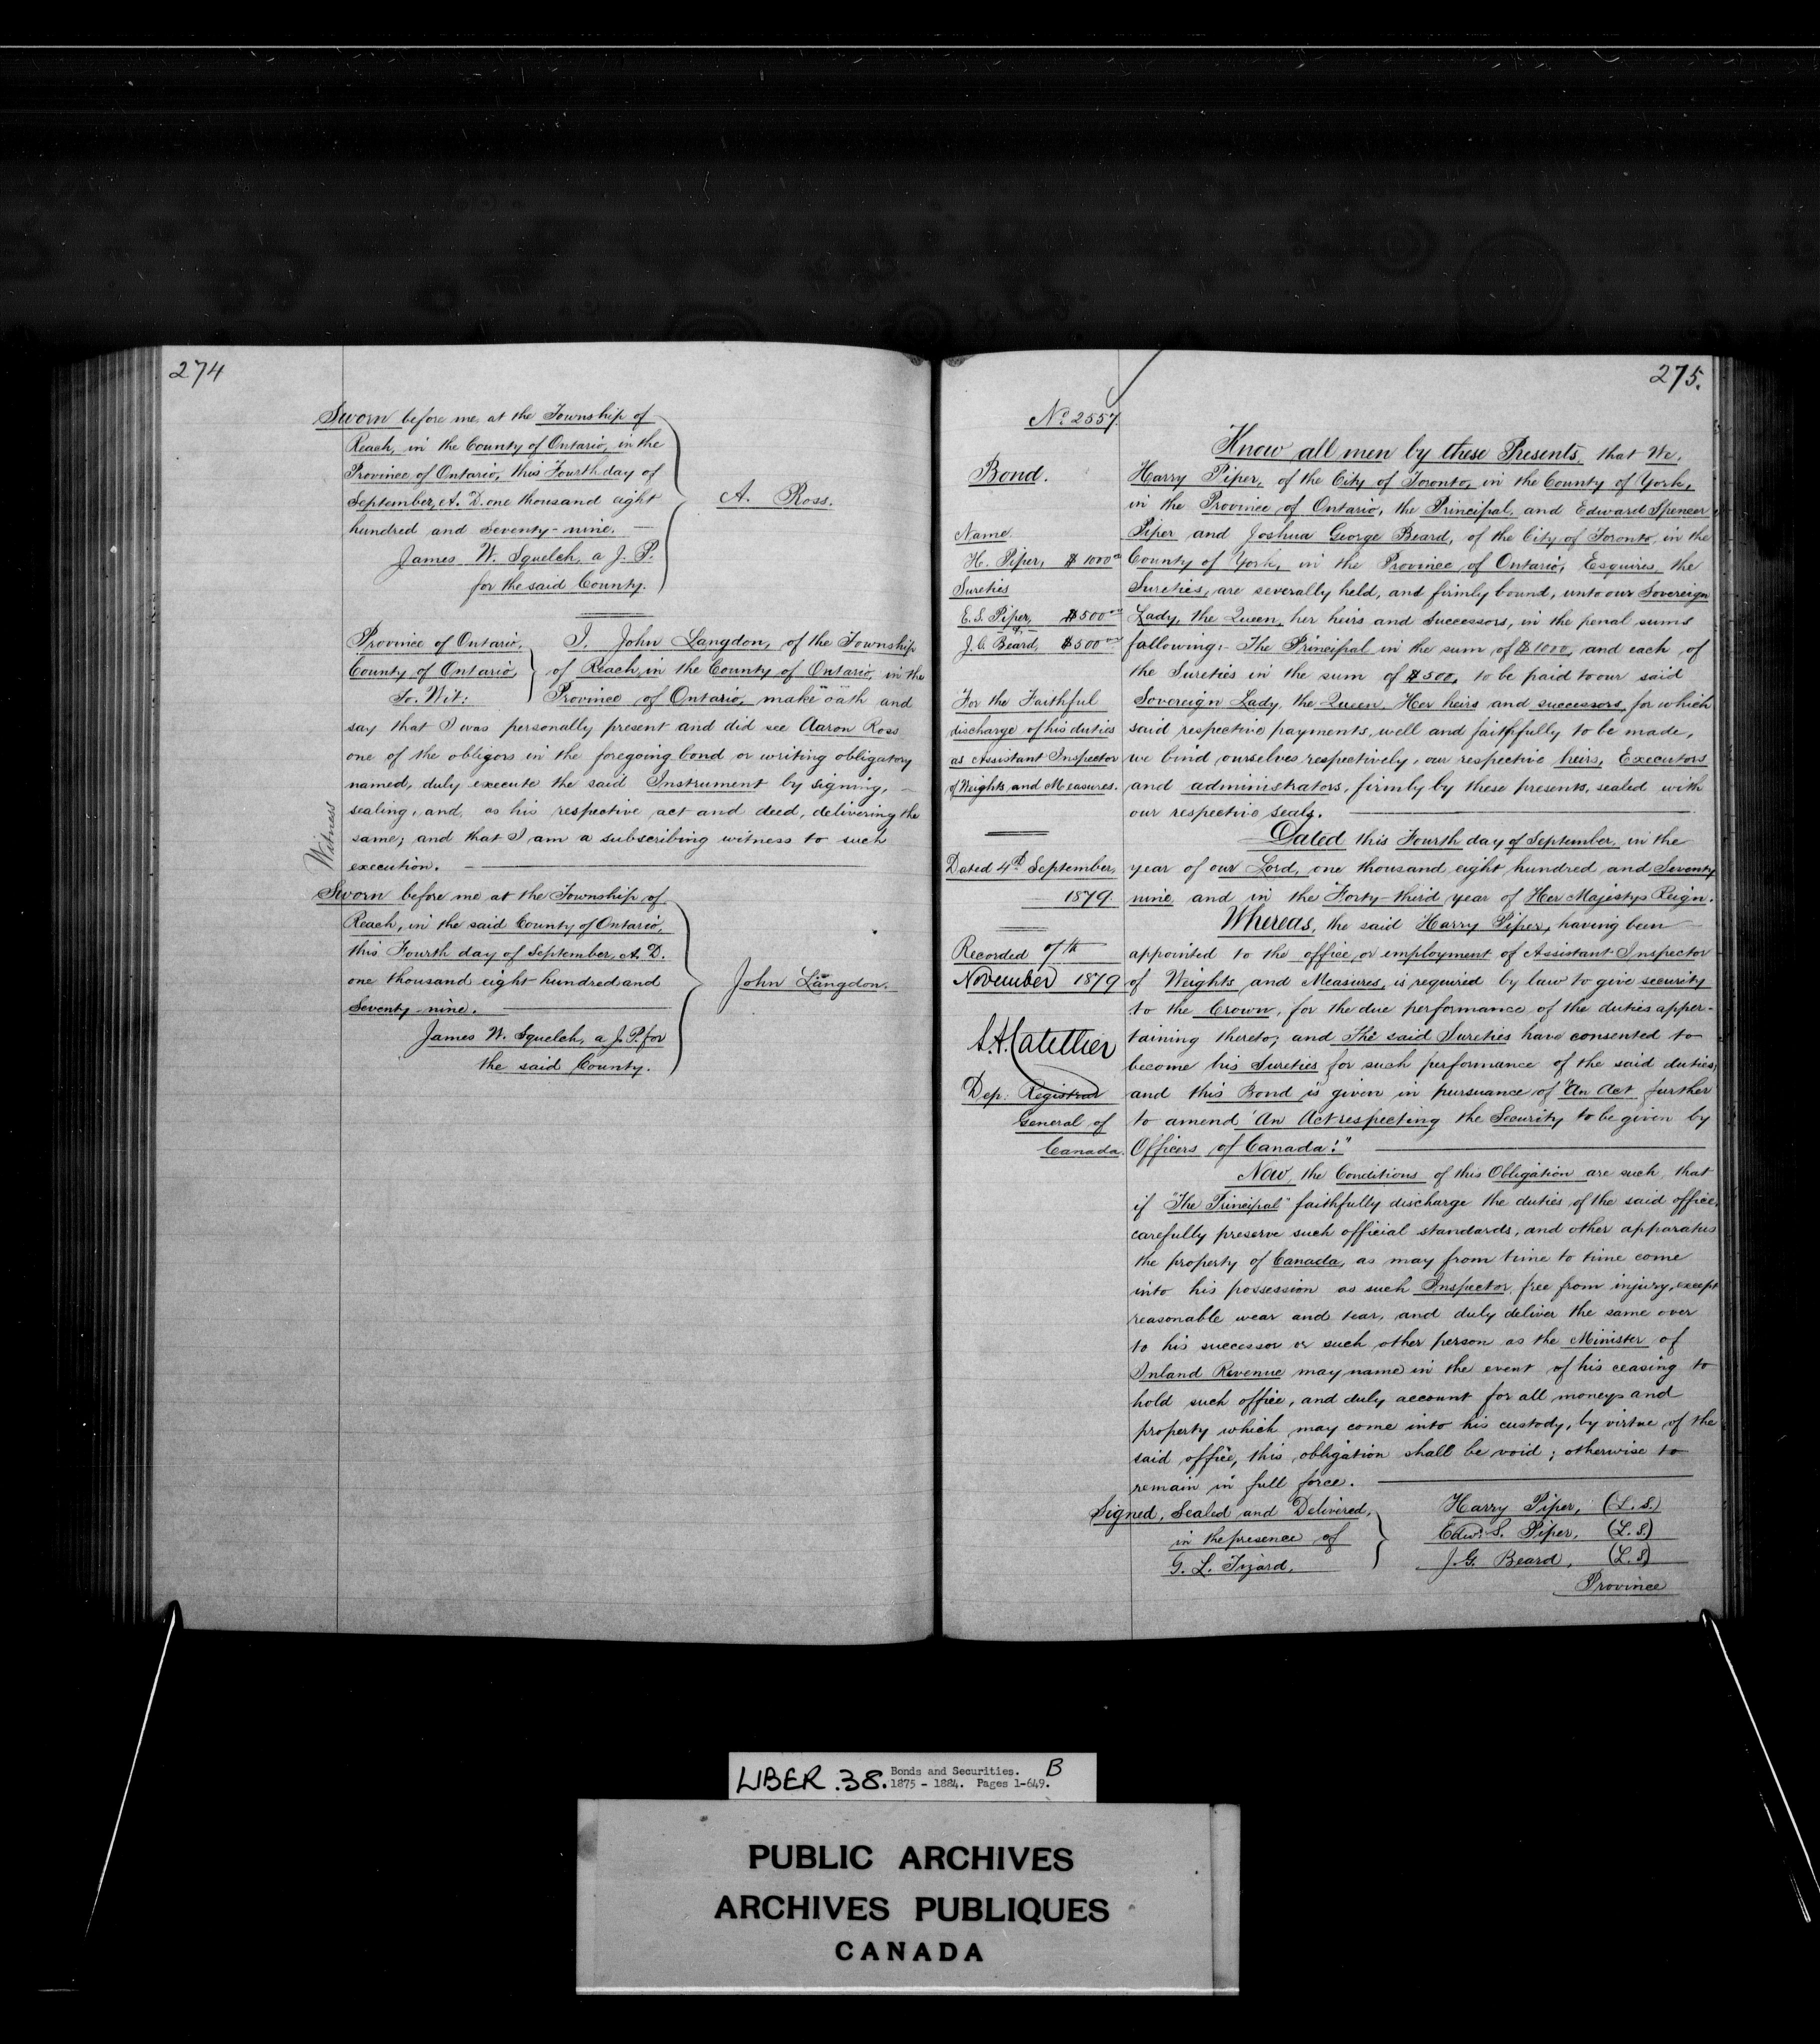 274
Sworn before me at the Township of
Reach, in the County of Ontario, in the
Province of Ontario, this Fourth day of
September, A. D. one thousand eight
hundred and Seventy-nine.
James W. Squelch, a J. P.
for the said County.
A. Ross.
Province of Ontario,
County of Ontario,
To. Wit:
I, John Langdon, of the Township
of Reach, in the County of Ontario, in the
Province of Ontario, make oath and
say that I was personally present and did see Aaron Ross
one of the obligors in the foregoing bond or writing obligatory
named, duly execute the said Instrument by signing,
sealing, and, as his respective act and deed, delivering the
same; and that I am a subscribing witness to such
execution.
Witness
Sworn before me at the Township of
Reach, in the said County of Ontario,
this Fourth day of September, A. D.
one thousand eight hundred and
Seventy nine.
James W. Squelch, a J. P. for
the said County.
John Langdon.
275.
No 2557
Bond.
Name
H. Piper, $1000 00
Sureties
E. S. Piper, $500 00
J. G. Beard, $500 00
For the Faithful
discharge of his duties
as Assistant Inspector
of Weights and Measures.
Dated 4th September,
1879.
Recorded 7th
November 1879
Dep: Registrar
General of
Canada.
Know all men by these Presents, that We,
Harry Piper, of the City of Toronto, in the County of York,
in the Province of Ontario, the Principal, and Edward Spencer
Piper and Joshua George Beard, of the City of Toronto, in the
County of York, in the Province of Ontario, Esquires, the
Sureties, are severally held, and firmly bound, unto our Sovereign
Lady, the Queen, her heirs and Successors, in the penal sums
following:- The Principal in the sum of $1000, and each of
the Sureties in the sum of $500, to be paid to our said
Sovereign Lady, the Queen, Her heirs and successors, for which
said respective payments, well and faithfully to be made,
we bind ourselves respectively, our respective heirs, Executors
and administrators, firmly by these presents, sealed with
our respective seals.
Dated this Fourth day of September, in the
year of our Lord, one thousand eight hundred and Seventy
nine and in the Forty-third year of Her Majestys Reign.
Whereas, the said Harry Piper, having been
appointed to the office or employment of Assistant Inspector
of Weights and Measures, is required by law to give security
to the Crown, for the due performance of the duties apper-
taining thereto; and The said Sureties have consented to
become his Sureties for such performance of the said duties;
and this Bond is given in pursuance of "An Act further
to amend 'An Act respecting the Security to be given by
Officers of Canada:"
Now, the Conditions of this Obligation are such, that
if "The Principal" faithfully discharge the duties of the said office,
carefully preserve such official standards, and other apparatus
the property of Canada, as may from time to time come
into his possession as such Inspector, free from injury, except
reasonable wear and tear, and duly deliver the same over
to his successor or such other person as the Minister of
Inland Revenue may name in the event of his ceasing to
hold such office, and duly account for all moneys and
property which may come into his custody, by virtue of the
said office, this obligation shall be void; otherwise to
remain in full force.
Signed, Sealed and Delivered,
in the presence of
G. L. Tizard.
Harry Piper, (L. S.)
Edw. S. Piper, (L. S.)
J. G. Beard, (L. S.)
Province
LIBER .38. Bonds and Securities. B
1875 - 1884. Pages 1-649.
PUBLIC ARCHIVES
ARCHIVES PUBLIQUES
CANADA